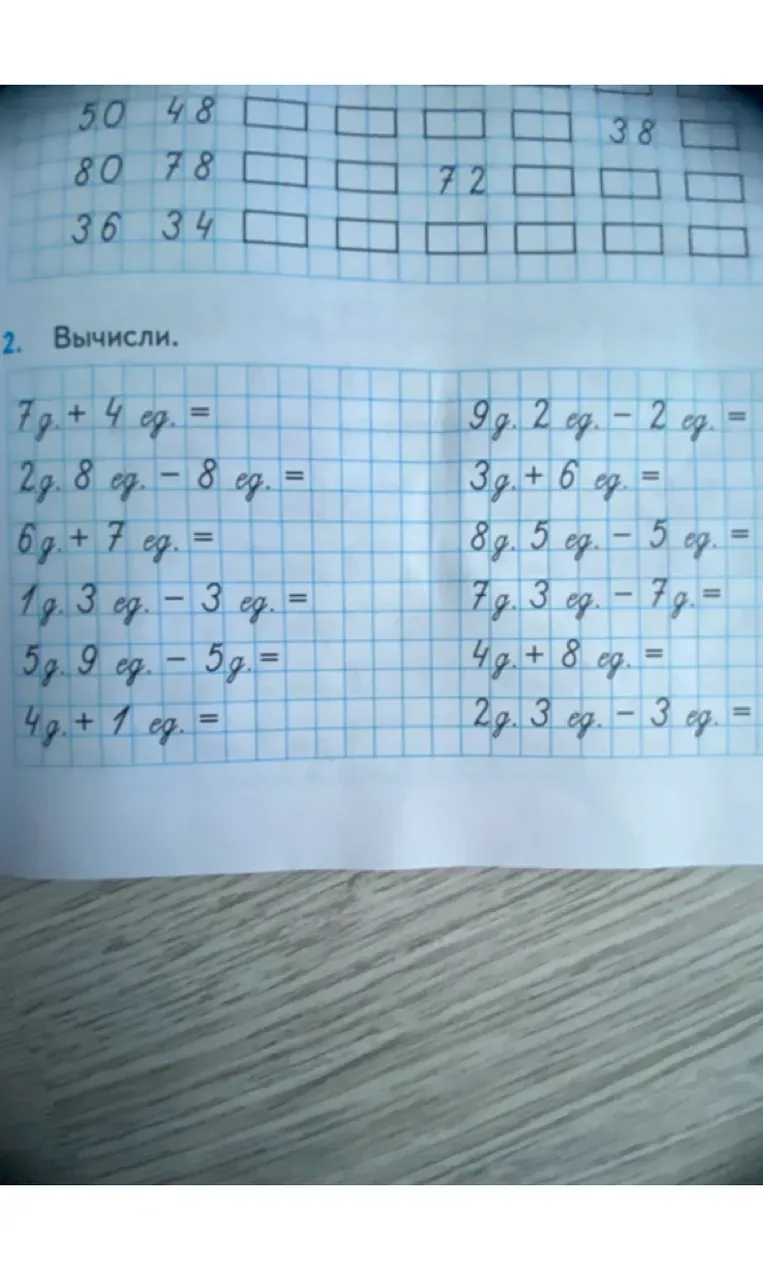 50 48 38
80 78 72
36 34
2. Вычисли.
7д. + 4 ед. =
9д. 2 ед. - 2 ед. =
2д. 8 ед. - 8 ед. =
3д. + 6 ед. =
6д. + 7 ед. =
8д. 5 ед. - 5 ед. =
1д. 3 ед. - 3 ед. =
7д. 3 ед. - 7д. =
5д. 9 ед. - 5д. =
4д. + 8 ед. =
4д. + 1 ед. =
2д. 3 ед. - 3 ед. =